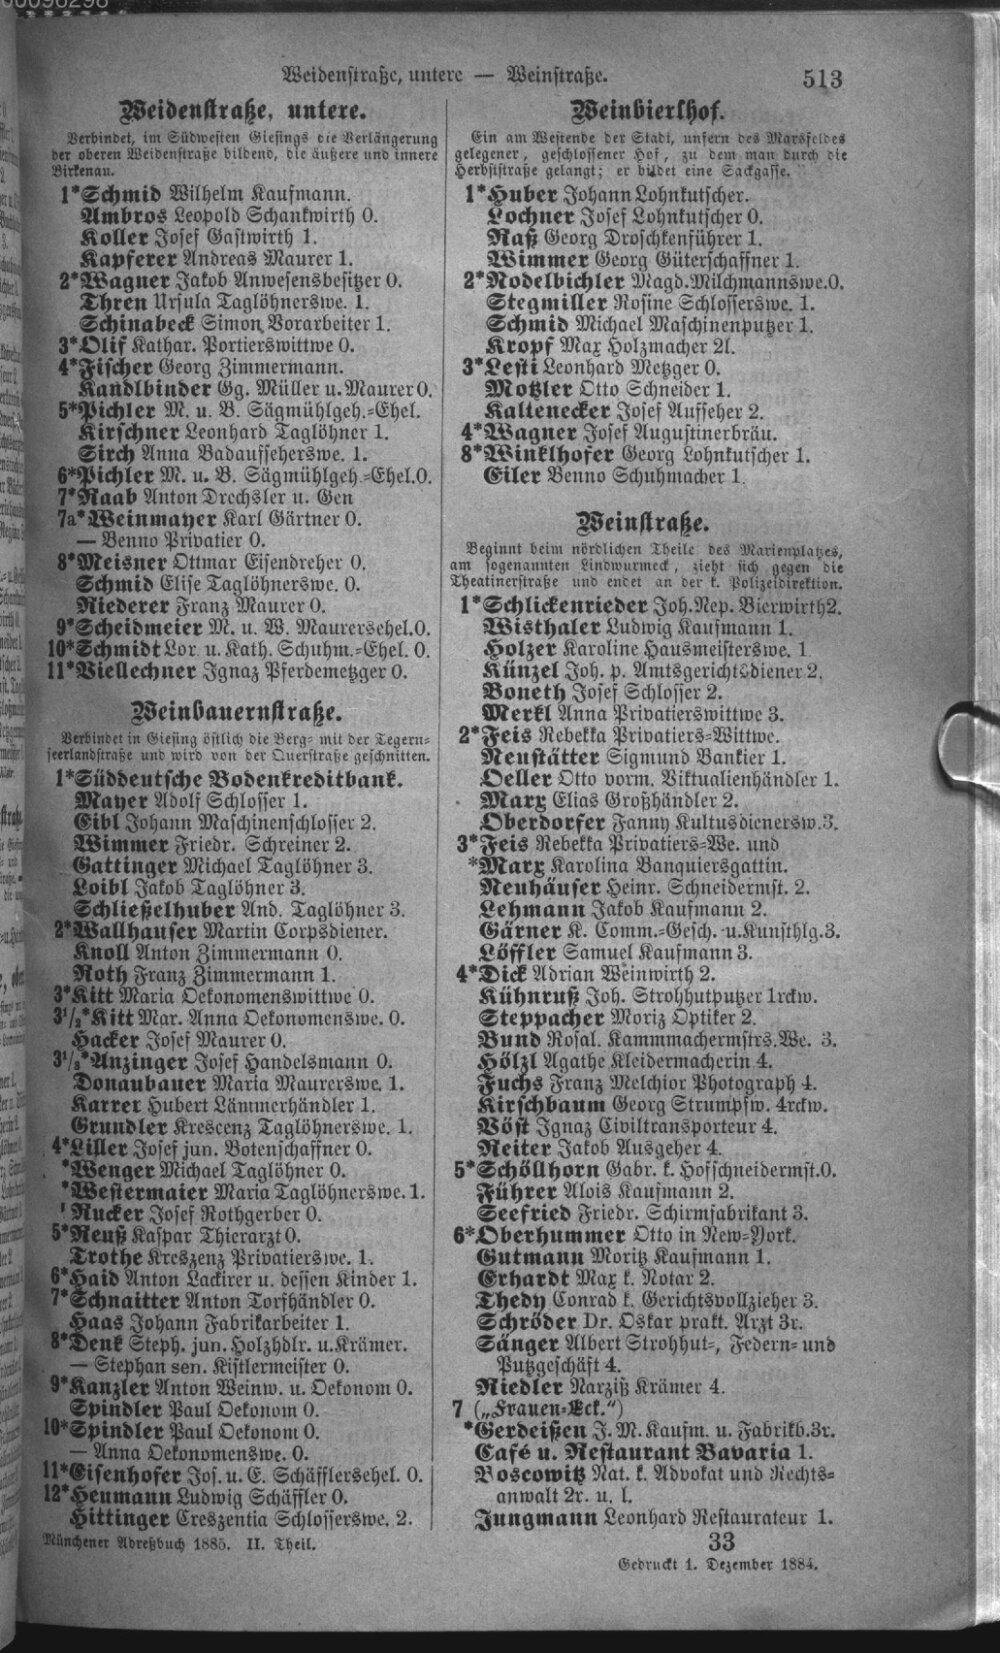 00098298
Weidenstraße, untere — Weinstraße.
513
Weidenstraße, untere.
Verbindet, im Südwesten Giesings die Verlängerung
der oberen Weidenstraße bildend, die äußere und innere
Birkenau.
1*Schmid Wilhelm Kaufmann.
Ambros Leopold Schankwirth 0.
Koller Josef Gastwirth 1.
Kapferer Andreas Maurer 1.
2*Wagner Jakob Anwesensbesitzer 0.
Thren Ursula Taglöhnerswe. 1.
Schinabeck Simon Vorarbeiter 1.
3*Olif Kathar. Portierswittwe 0.
4*Fischer Georg Zimmermann.
Kandlbinder Gg. Müller u. Maurer 0.
5*Pichler M. u. B. Sägmühlgeh.=Ehel.
Kirschner Leonhard Taglöhner 1.
Sirch Anna Badaufseherswe. 1.
6*Pichler M. u. B. Sägmühlgeh.=Ehel.0.
7*Raab Anton Drechsler u. Gen
7a*Weinmayer Karl Gärtner 0.
— Benno Privatier 0.
8*Meisner Ottmar Eisendreher 0.
Schmid Elise Taglöhnerswe. 0.
Riederer Franz Maurer 0.
9*Scheidmeier M. u. W. Maurersehel.0.
10*Schmidt Lor. u. Kath. Schuhm.=Ehel. 0.
11*Viellechner Ignaz Pferdemetzger 0.
Weinbauernstraße.
Verbindet in Giesing östlich die Berg= mit der Tegern=
seerlandstraße und wird von der Querstraße geschnitten.
1*Süddeutsche Bodenkreditbank.
Mayer Adolf Schlosser 1.
Eibl Johann Maschinenschlosser 2.
Wimmer Friedr. Schreiner 2.
Gattinger Michael Taglöhner 3.
Loibl Jakob Taglöhner 3.
Schließelhuber And. Taglöhner 3.
2*Wallhauser Martin Corpsdiener.
Knoll Anton Zimmermann 0.
Roth Franz Zimmermann 1.
3*Kitt Maria Oekonomenswittwe 0.
3½*Kitt Mar. Anna Oekonomenswe. 0.
Hacker Josef Maurer 0.
3⅓*Anzinger Josef Handelsmann 0.
Donaubauer Maria Maurerswe. 1.
Karrer Hubert Lämmerhändler 1.
Grundler Krescenz Taglöhnerswe. 1.
4*Liller Josef jun. Botenschaffner 0.
*Wenger Michael Taglöhner 0.
*Westermaier Maria Taglöhnerswe. 1.
*Rucker Josef Rothgerber 0.
5*Reuß Kaspar Thierarzt 0.
Trothe Kreszenz Privatierswe. 1.
6*Haid Anton Lackirer u. dessen Kinder 1.
7*Schnaitter Anton Torfhändler 0.
Haas Johann Fabrikarbeiter 1.
8*Denk Steph. jun. Holzhdlr. u. Krämer.
— Stephan sen. Kistlermeister 0.
9*Kanzler Anton Weinw. u. Oekonom 0.
Spindler Paul Oekonom 0.
10*Spindler Paul Oekonom 0.
— Anna Oekonomenswe. 0.
11*Eisenhofer Jos. u. E. Schäfflersehel. 0.
12*Heumann Ludwig Schäffler 0.
Hittinger Creszentia Schlosserswe. 2.
Münchener Adreßbuch 1885. II. Theil.
Weinbierlhof.
Ein am Westende der Stadt, unfern des Marsfeldes
gelegener, geschlossener Hof, zu dem man durch die
Herbststraße gelangt; er bildet eine Sackgasse.
1*Huber Johann Lohnkutscher.
Lochner Josef Lohnkutscher 0.
Raß Georg Droschkenführer 1.
Wimmer Georg Güterschaffner 1.
2*Nodelbichler Magd. Milchmannswe.0.
Stegmiller Rosine Schlosserswe. 1.
Schmid Michael Maschinenputzer 1.
Kropf Max Holzmacher 2l.
3*Lesti Leonhard Metzger 0.
Motzler Otto Schneider 1.
Kaltenecker Josef Aufseher 2.
4*Wagner Josef Augustinerbräu.
8*Winklhofer Georg Lohnkutscher 1.
Eiler Benno Schuhmacher 1.
Weinstraße.
Beginnt beim nördlichen Theile des Marienplatzes,
am sogenannten Lindwurmeck, zieht sich gegen die
Theatinerstraße und endet an der k. Polizeidirektion.
1*Schlickenrieder Joh. Nep. Bierwirth 2.
Wisthaler Ludwig Kaufmann 1.
Holzer Karoline Hausmeisterswe. 1
Künzel Joh. p. Amtsgerichtsdiener 2.
Boneth Josef Schlosser 2.
Merkl Anna Privatierswittwe 3.
2*Feis Rebekka Privatiers=Wittwe.
Neustätter Sigmund Bankier 1.
Oeller Otto vorm. Viktualienhändler 1.
Marx Elias Großhändler 2.
Oberdorfer Fanny Kultusdienersw. 3.
3*Feis Rebekka Privatiers=We. und
*Marx Karolina Banquiersgattin.
Neuhäuser Heinr. Schneidermst. 2.
Lehmann Jakob Kaufmann 2.
Gärner K. Comm.=Gesch. u. Kunsthlg.3.
Löffler Samuel Kaufmann 3.
4*Dick Adrian Weinwirth 2.
Kühnruß Joh. Strohhutputzer 1rckw.
Steppacher Moriz Optiker 2.
Bund Rosal. Kammmachermstrs. We. 3.
Hölzl Agathe Kleidermacherin 4.
Fuchs Franz Melchior Photograph 4.
Kirschbaum Georg Strumpfw. 4rckw.
Vöst Ignaz Civiltransporteur 4.
Reiter Jakob Ausgeher 4.
5*Schöllhorn Gabr. k. Hofschneidermst.0.
Führer Alois Kaufmann 2.
Seefried Friedr. Schirmfabrikant 3.
6*Oberhummer Otto in New=York.
Gutmann Moritz Kaufmann 1.
Erhardt Max k. Notar 2.
Thedy Conrad k. Gerichtsvollzieher 3.
Schröder Dr. Oskar prakt. Arzt 3r.
Sänger Albert Strohhut=, Federn= und
Putzgeschäft 4.
Riedler Narziß Krämer 4.
7 („Frauen=Eck.")
*Gerdeißen J. M. Kaufm. u. Fabrikb.3r.
Café u. Restaurant Bavaria 1.
Boscowitz Nat. k. Advokat und Rechts=
anwalt 2r. u. l.
Jungmann Leonhard Restaurateur 1.
33
Gedruckt 1. Dezember 1884.